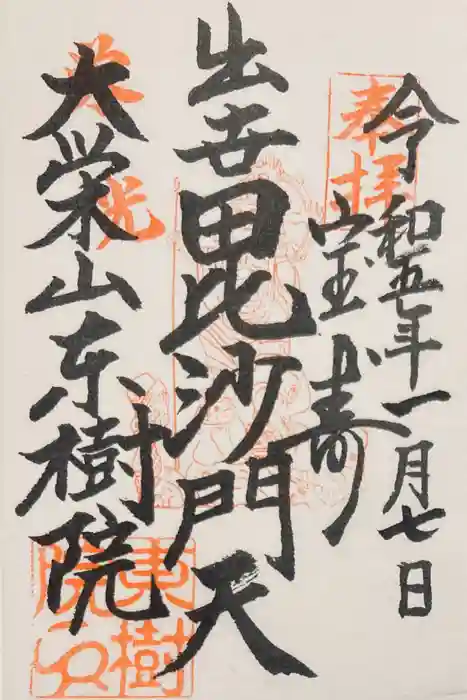 令和五年一月七日
奉拝
宝寿
出世毘沙門天
大栄山东樹院
東樹
院